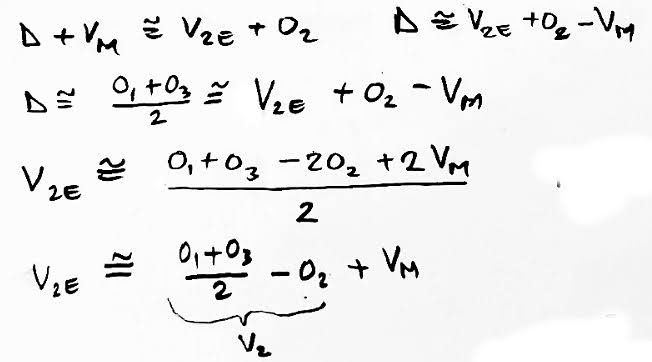 D + V_M ≅ V_2E + O_2    D ≅ V_2E + O_2 - V_M
D ≅ (O_1 + O_3)/2 ≅ V_2E + O_2 - V_M
V_2E ≅ (O_1 + O_3 - 2O_2 + 2V_M)/2
V_2E ≅ (O_1 + O_3)/2 - O_2 + V_M
V_2